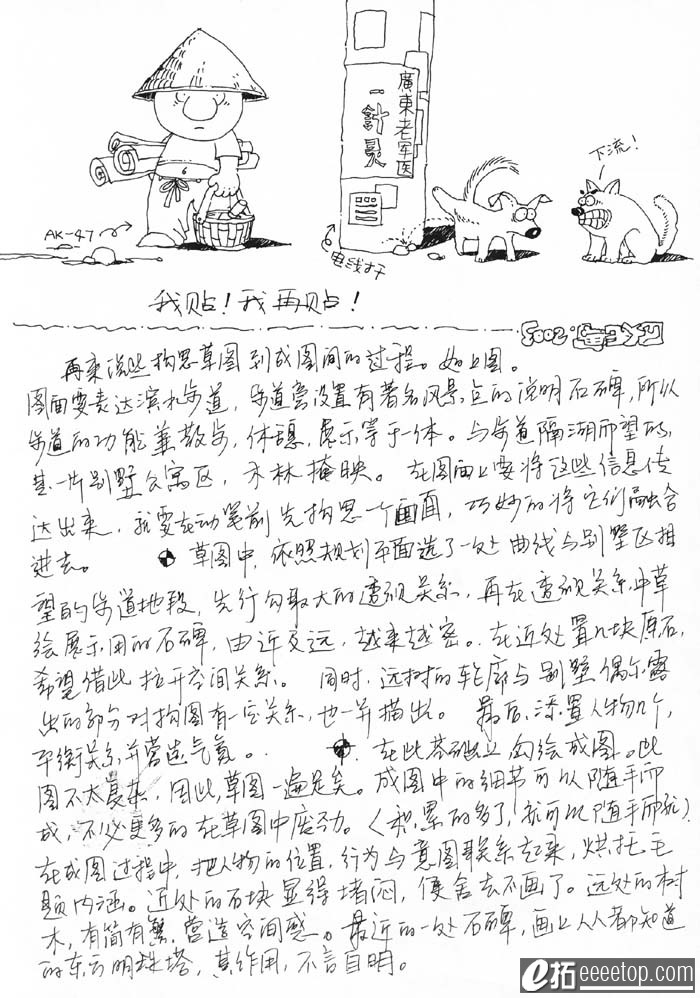 廣東老军医
一針灵
下流！
AK-47
电线杆
我贴！我再贴！
2003
再来说些构思草图到成图间的过程。如上图。
图面要表达滨水步道，步道旁设置有著名风景点的说明石碑，所以
步道的功能兼散步，休憩，展示等于一体。与步道隔湖而望的，
是一片别墅公寓区，木林掩映。在图面上要将这些信息传
达出来，就要在动笔前先构思一个画面，巧妙的将它们融合
进去。草图中，依照规划平面选了一处曲线与别墅区相
望的步道地段，先行勾取大的透视关系，再在透视关系中草
绘展示用的石碑，由近及远，越来越密。在近处置几块原石，
希望借此拉开空间关系。同时，远树的轮廓与别墅偶尔露
出的部分对构图有一定关系，也一并描出。最后，添置人物几个，
平衡关系并营造气氛。在此基础上勾绘成图。此
图不太复杂，因此，草图一遍足矣。成图中的细节可以随手而
成，不必更多的在草图中废功。（积累的多了，就可以随手而就）
在成图过程中，把人物的位置，行为与意图联系起来，烘托主
题内涵。近处的石块显得堵闷，便舍去不画了。远处的树
木，有简有繁，营造空间感。最近的一处石碑，画上人人都知道
的东方明珠塔，其作用，不言自明。
e拓 eeeetop.com